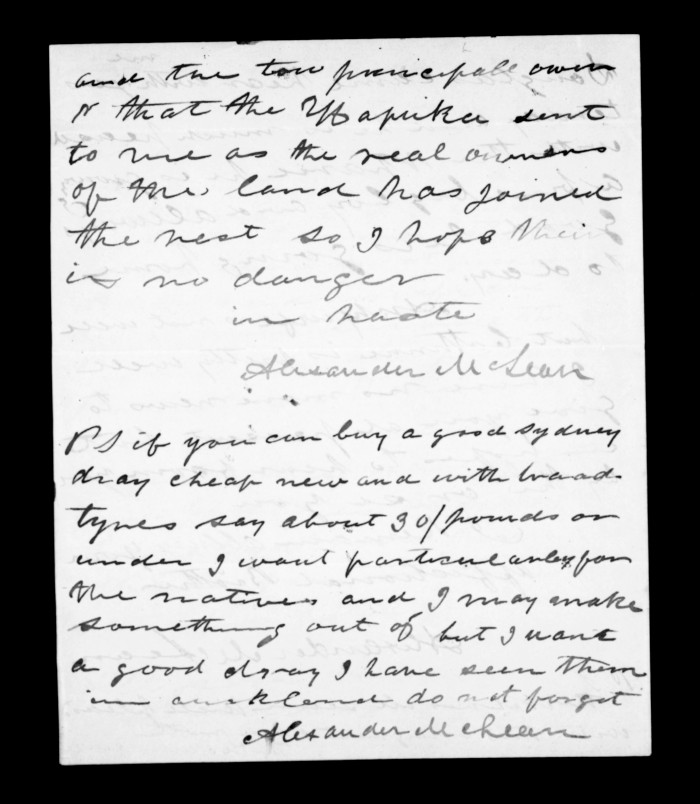 and the tow principall owen
r that the Hapuka sent
to me as the real owners
of the land has joined
the rest so I hope their
is no danger
in haste
Alexander McLean
PS if you can buy a good sydney
dray cheap new and with broad
tyres say about 30/pounds or
under I want particularly for
the natives and I may make
something out of but I want
a good dray I have seen them
in auckland do not forget
Alexander McLean